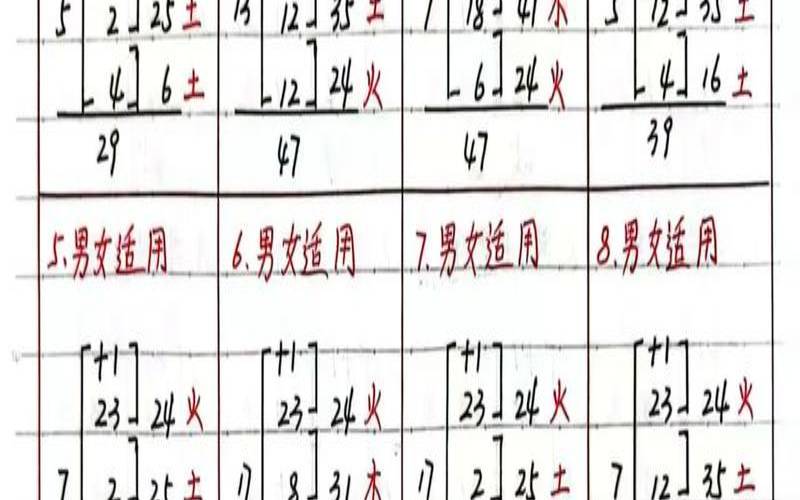 5 2 25 土 13 12 35 土 7 18 41 木 5 12 35 土
4 6 土 12 24 火 6 24 火 4 16 土
29 47 47 39
5.男女适用 6.男女适用 7.男女适用 8.男女适用
+1 +1 +1 +1
23 24 火 23 24 火 23 24 火 23 24 火
7 2 25 土 17 8 31 木 17 2 25 土 7 12 35 土